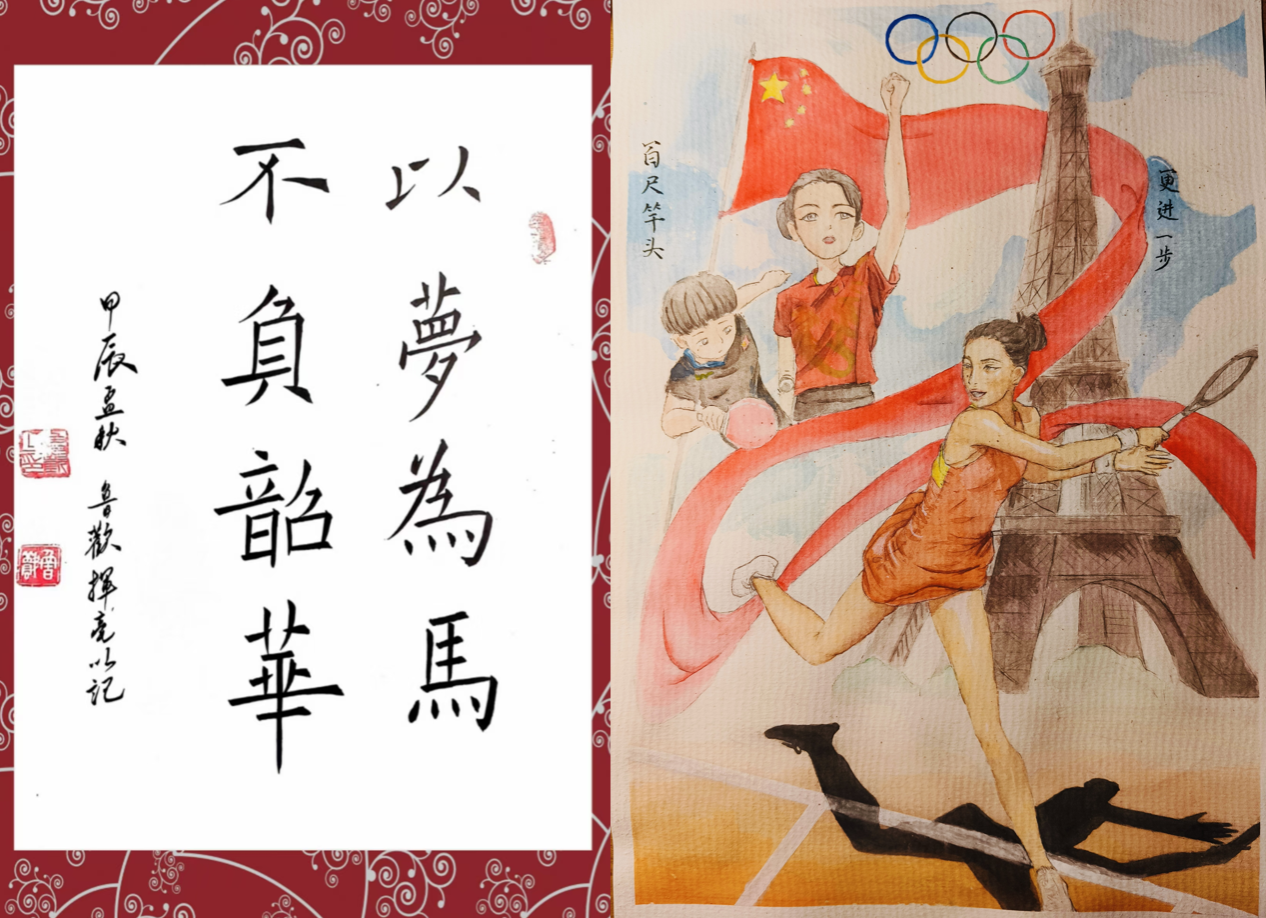 以夢為馬
不負韶華
甲辰孟秋 魯歡揮毫以記
百尺竿头
更进一步